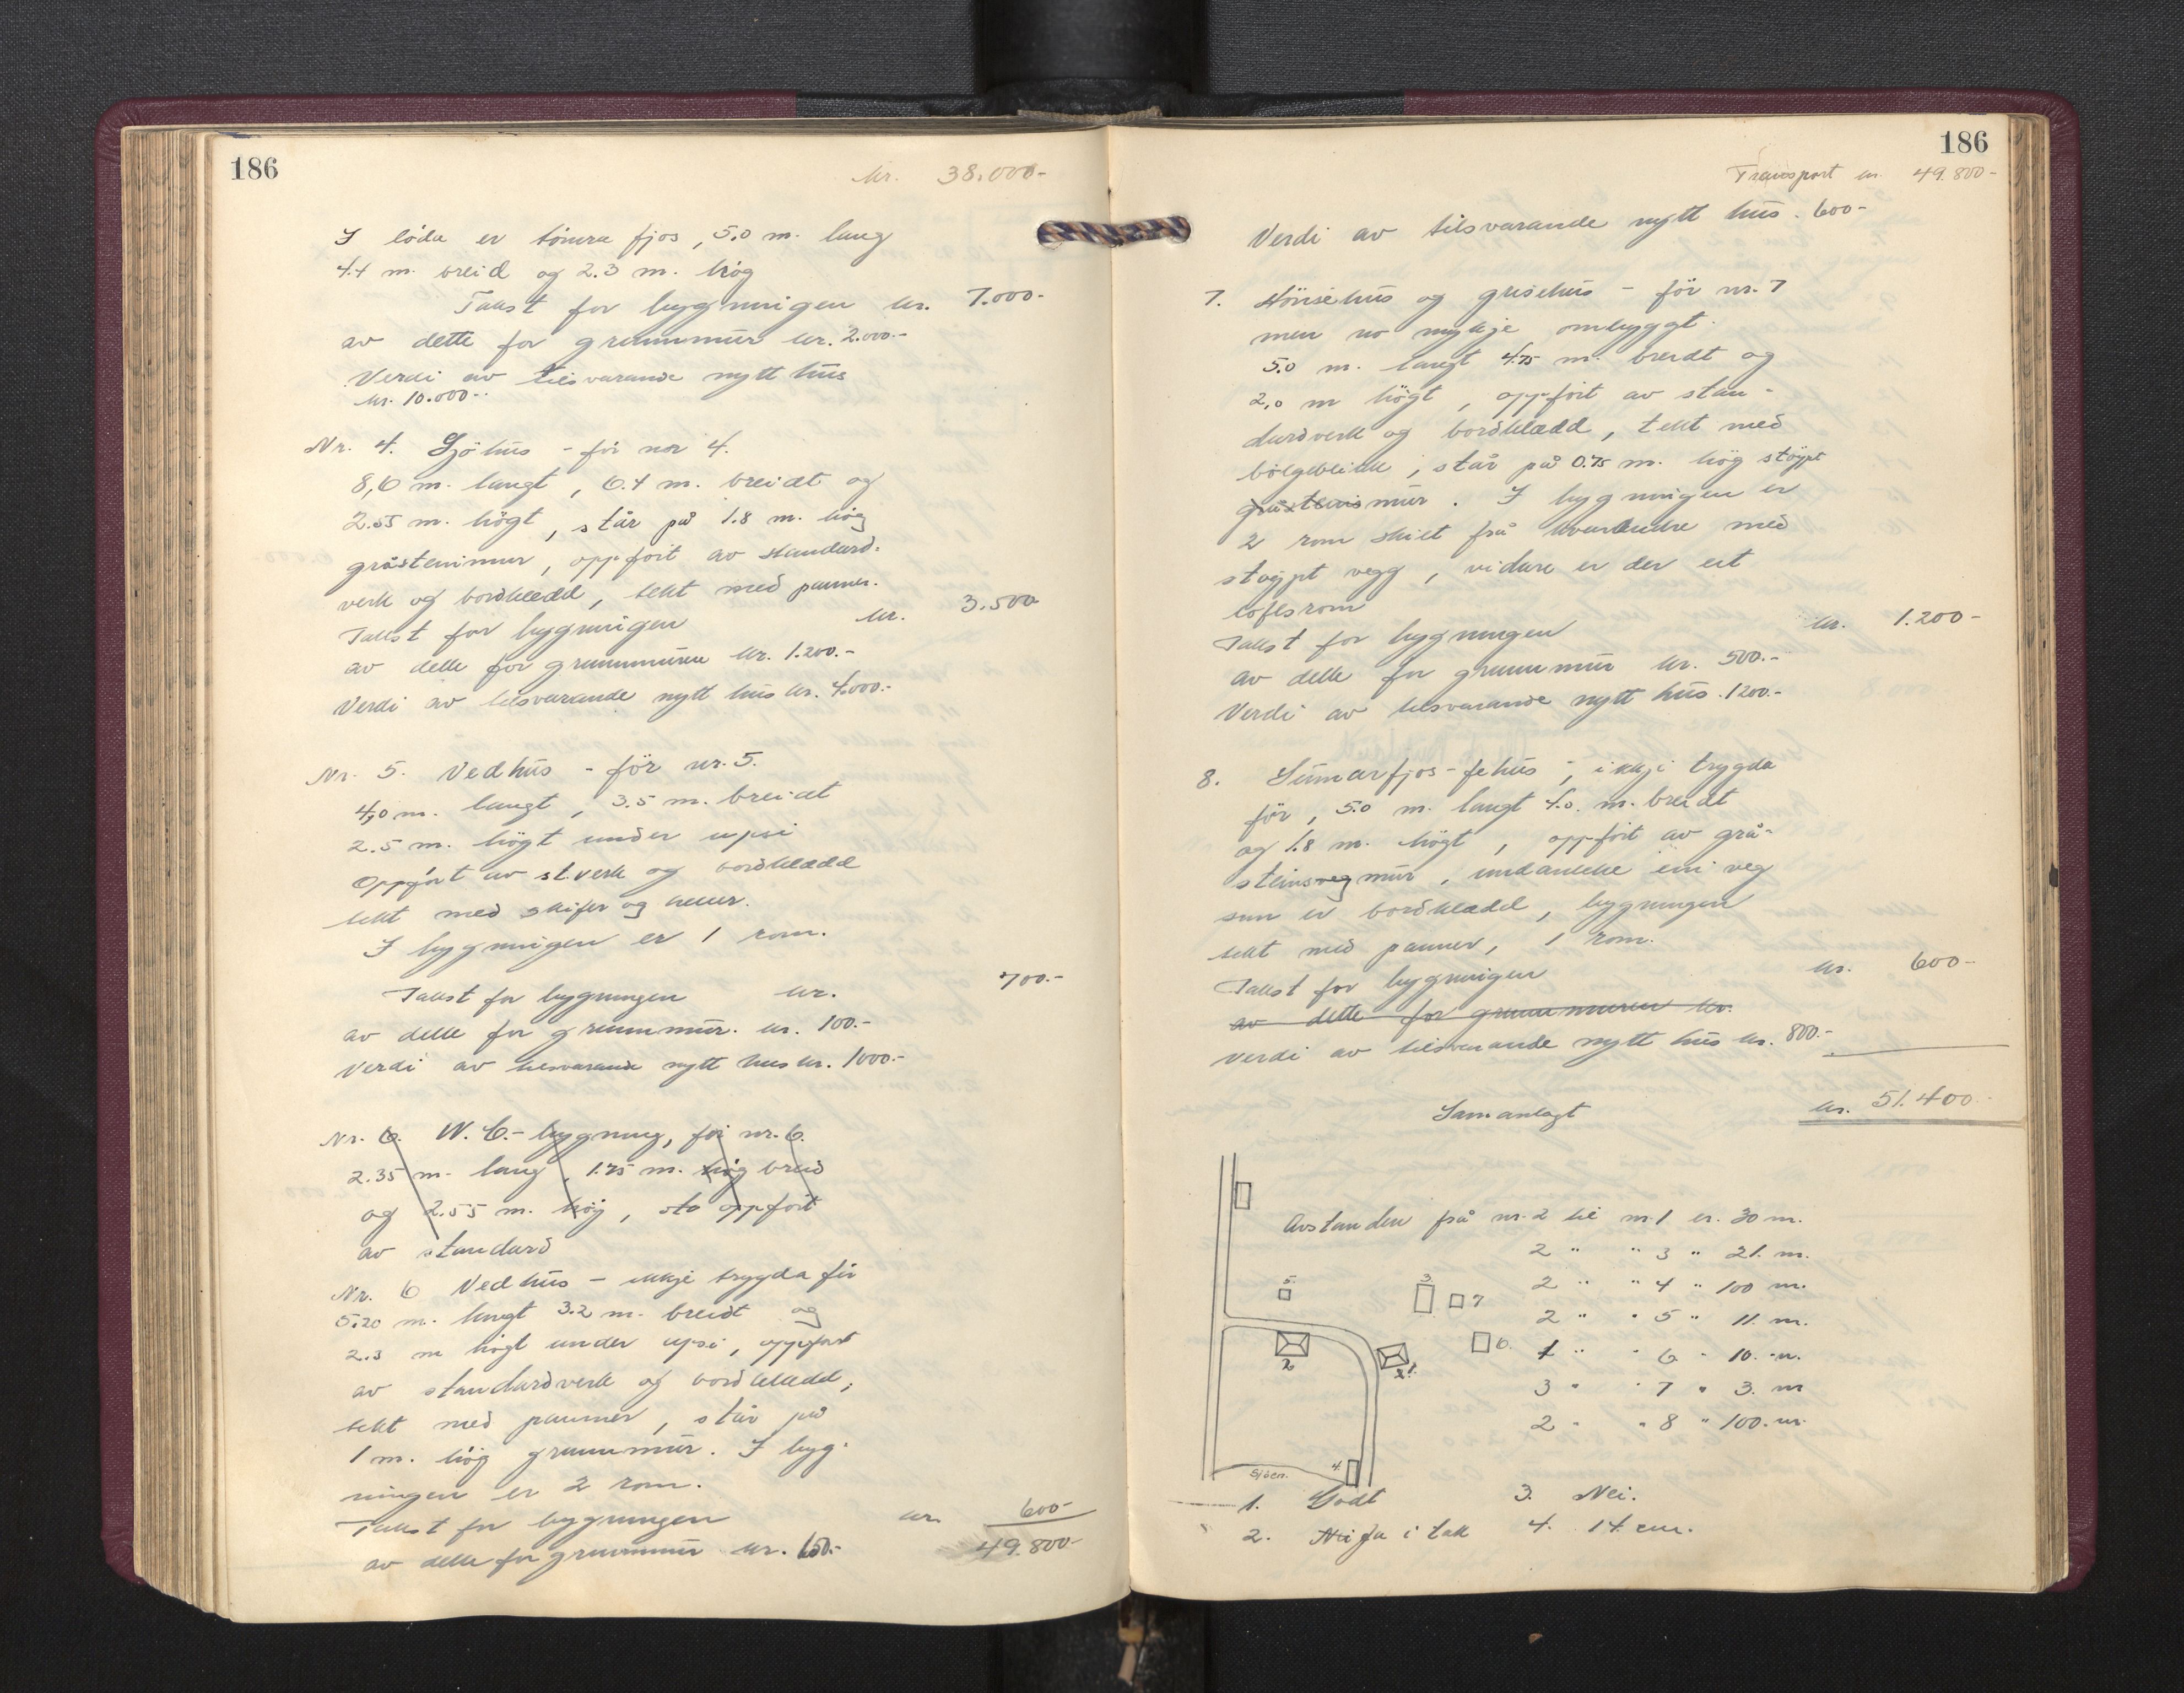 186
kr. 38.000-
I löda er tömra fjos, 5,0 m. lang
4.4 m. breid og 2.3 m. hög
Takst for bygningen kr. 7.000-
av dette for grunnmur kr. 2.000.-
Verdi av tilsvarande nytt hus
kr. 10.000-
Nr. 4. Sjöhus - för nr 4.
8,6 m. langt, 6.4 m. breidt og
2.55 m. högt, står på 1.8 m. hög
gråsteinmur, oppfört av standard-
verk og bordkledd, tekt med panner.
Takst for bygningen kr. 3.500
av dette for grunnmuren kr. 1.200.-
Verdi av tilsvarande nytt hus kr. 4.000.-
Nr. 5. Vedhus - för nr. 5.
4,0 m. langt, 3.5 m. breidt
2.5 m. högt under upsi
Oppfört av st.verk og bordkledd
tekt med skifer og heller.
I bygningen er 1 rom.
Takst for bygningen kr. 700.-
av dette for grunnmur. kr. 100.-
Verdi av tilsvarande nytt hus kr. 1000.-
Nr. 6. W.C.- bygning, för nr. 6.
2.35 m. lang, 1.75 m. hög breid
og 2.55 m. hög, sto oppfört
av standard
Nr. 6 Vedhus - ikkje trygda för
5.20 m. langt 3.2 m. breidt og
2.3 m högt under upsi, oppfört
av standardverk og bordkledd,
tekt med panner, står på
1 m. hög grunnmur. I byg-
ningen er 2 rom.
Takst for bygningen kr. 600-
av dette for grunnmur kr. 150.- 49.800-
186
Transport kr. 49.800-
Verdi av tilsvarande nytt hus. 600-
7. Hönsehus og grisehus - för nr. 7
men no mykje ombyggt.
5.0 m. langt 4.75 m. breidt og
2,0 m högt, oppfört av stan-
dardverk og bordkledd, tekt med
bölgeblikk, står på 0.75 m. hög stöypt
gråsteinsmur. I bygningen er
2 rom skilt frå kvarandre med
stöypt vegg, vidare er der eit
loftsrom
Takst for bygningen kr. 1.200-
av dette for grunnmur kr. 500.-
Verdi av tilsvarande nytt hus. 1200.-
8. Sumarfjos - fehus -, ikkje trygda
för, 5.0 m. langt 4.0. m. breidt
og 1.8 m. högt, oppfört av grå-
steinsveg mur, undanteke ein veg
som er bordkledd, bygningen
tekt med panner, 1 rom.
Takst for bygningen kr. 600-
av dette for grunnmuren kr.
Verdi av tilsvarande nytt hus kr. 800.-
Samanlagt kr. 51.400-
Avstanden frå nr. 2 til nr. 1 er. 30 m.
2 " " 3 " 21. m.
2 " " 4 " 100 m.
2 " " 5 " 11. m.
1 " " 6 " 10. m.
3 " " 7 " 3. m
2 " " 8 " 100. m.
5.
3.
7
6.
2
1.
4.
Sjöen.
1. Godt 3. Nei.
2. Nei Ja i tak 4. 14 cm.